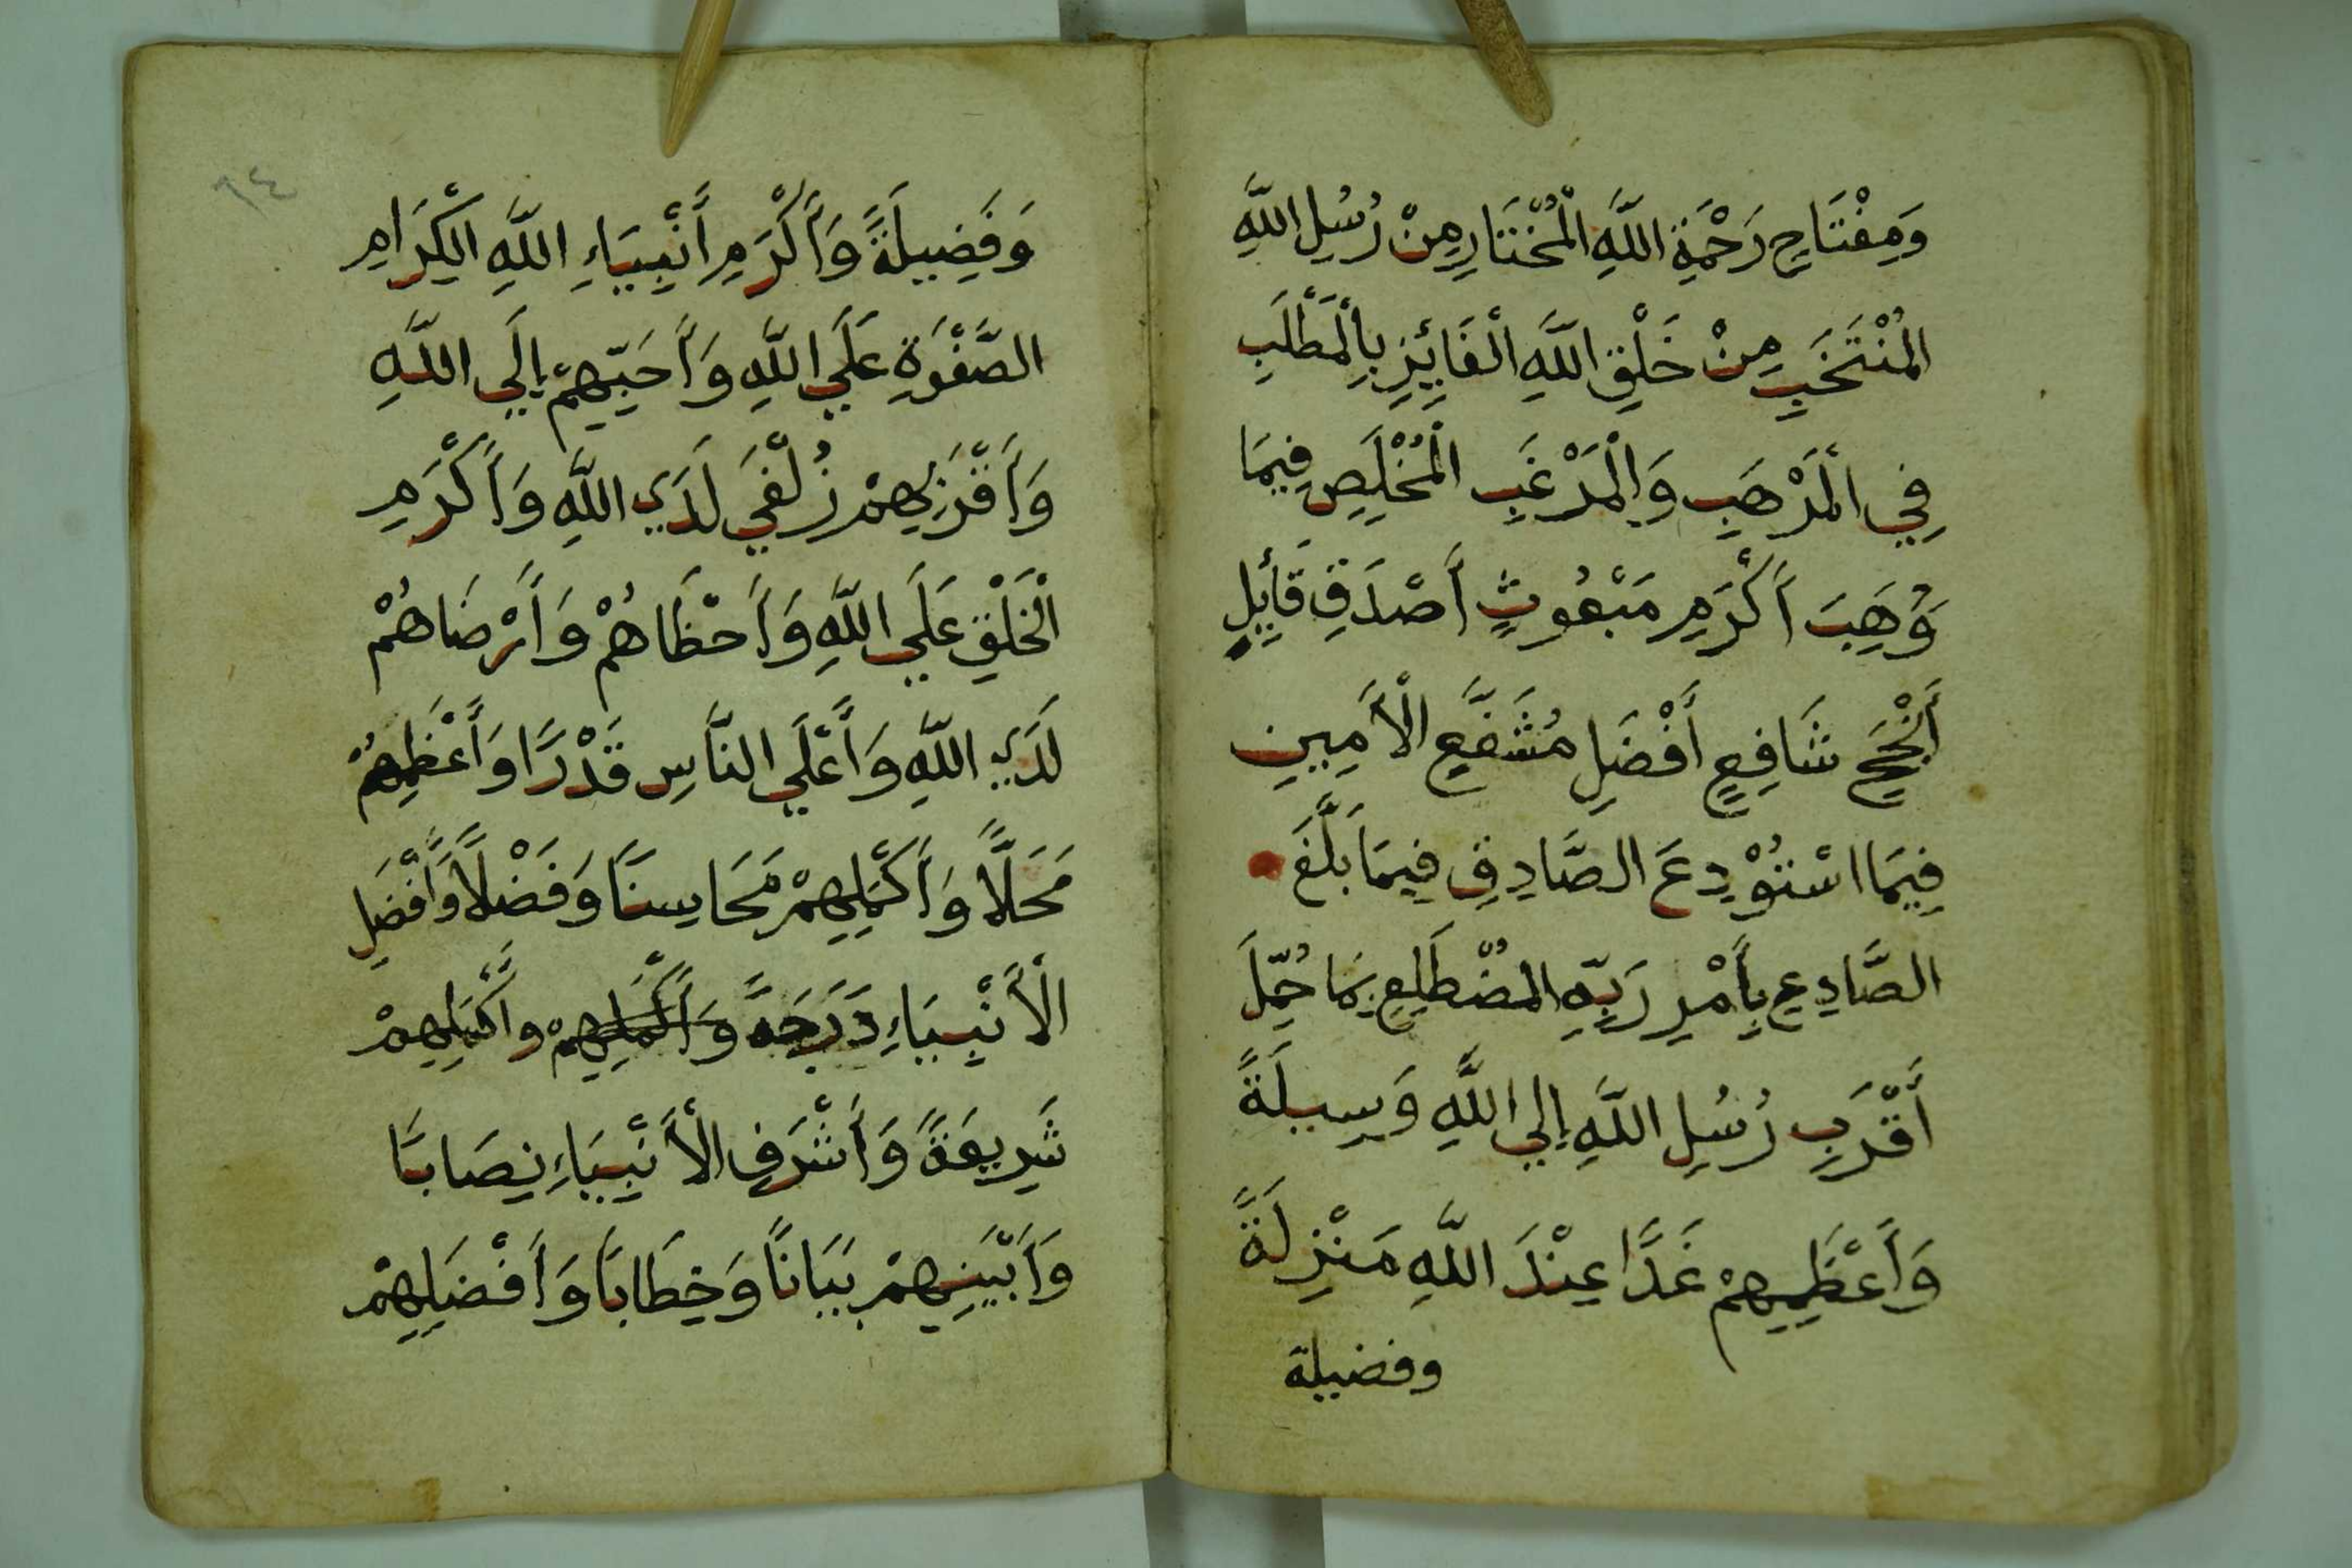 وَمِفْتَاحِ رَحْمَةِ اللَّهِ الْمُخْتَارِ مِنْ رُسُلِ اللَّهِ
الْمُنْتَخَبِ مِنْ خَلْقِ اللَّهِ الْفَائِزِ بِالْمَطْلَبِ
فِي الْمَرْهَبِ وَالْمَرْغَبِ الْمُخْلَصِ فِيمَا
وُهِبَ أَكْرَمِ مَبْعُوثٍ أَصْدَقِ قَائِلٍ
أَنْجَحِ شَافِعٍ أَفْضَلِ مُشَفَّعٍ الْأَمِينِ
فِيمَا اسْتُوْدِعَ الصَّادِقِ فِيمَا بَلَّغَ
الصَّادِعِ بِأَمْرِ رَبِّهِ الْمُضْطَلِعِ بِمَا حُمِّلَ
أَقْرَبِ رُسُلِ اللَّهِ إِلَي اللَّهِ وَسِيلَةً
وَأَعْظَمِهِمْ غَدًا عِنْدَ اللَّهِ مَنْزِلَةً
وفضيلة
٩٤
وَفَضِيلَةً وَأَكْرَمِ أَنْبِيَاءِ اللَّهِ الْكِرَامِ
الصَّفْوَةِ عَلَي اللَّهِ وَأَحَبِّهِمْ إِلَي اللَّهِ
وَأَقْرَبِهِمْ زُلْفَي لَدَي اللَّهِ وَأَكْرَمِ
الْخَلْقِ عَلَي اللَّهِ وَأَحْظَاهُمْ وَأَرْضَاهُمْ
لَدَي اللَّهِ وَأَعْلَي النَّاسِ قَدْرًا وَأَعْظَمِهِمْ
مَحَلًّا وَأَكْمَلِهِمْ مَحَاسِنًا وَفَضْلًا وَأَفْضَلِ
الْأَنْبِيَاءِ دَرَجَةً وَأَكْمَلِهِمْ وأَكْمَلِهِمْ
شَرِيعَةً وَأَشْرَفِ الْأَنْبِيَاءِ نِصَابًا
وَأَبْيَنِهِمْ بَيَانًا وَخِطَابًا وَأَفْضَلِهِمْ